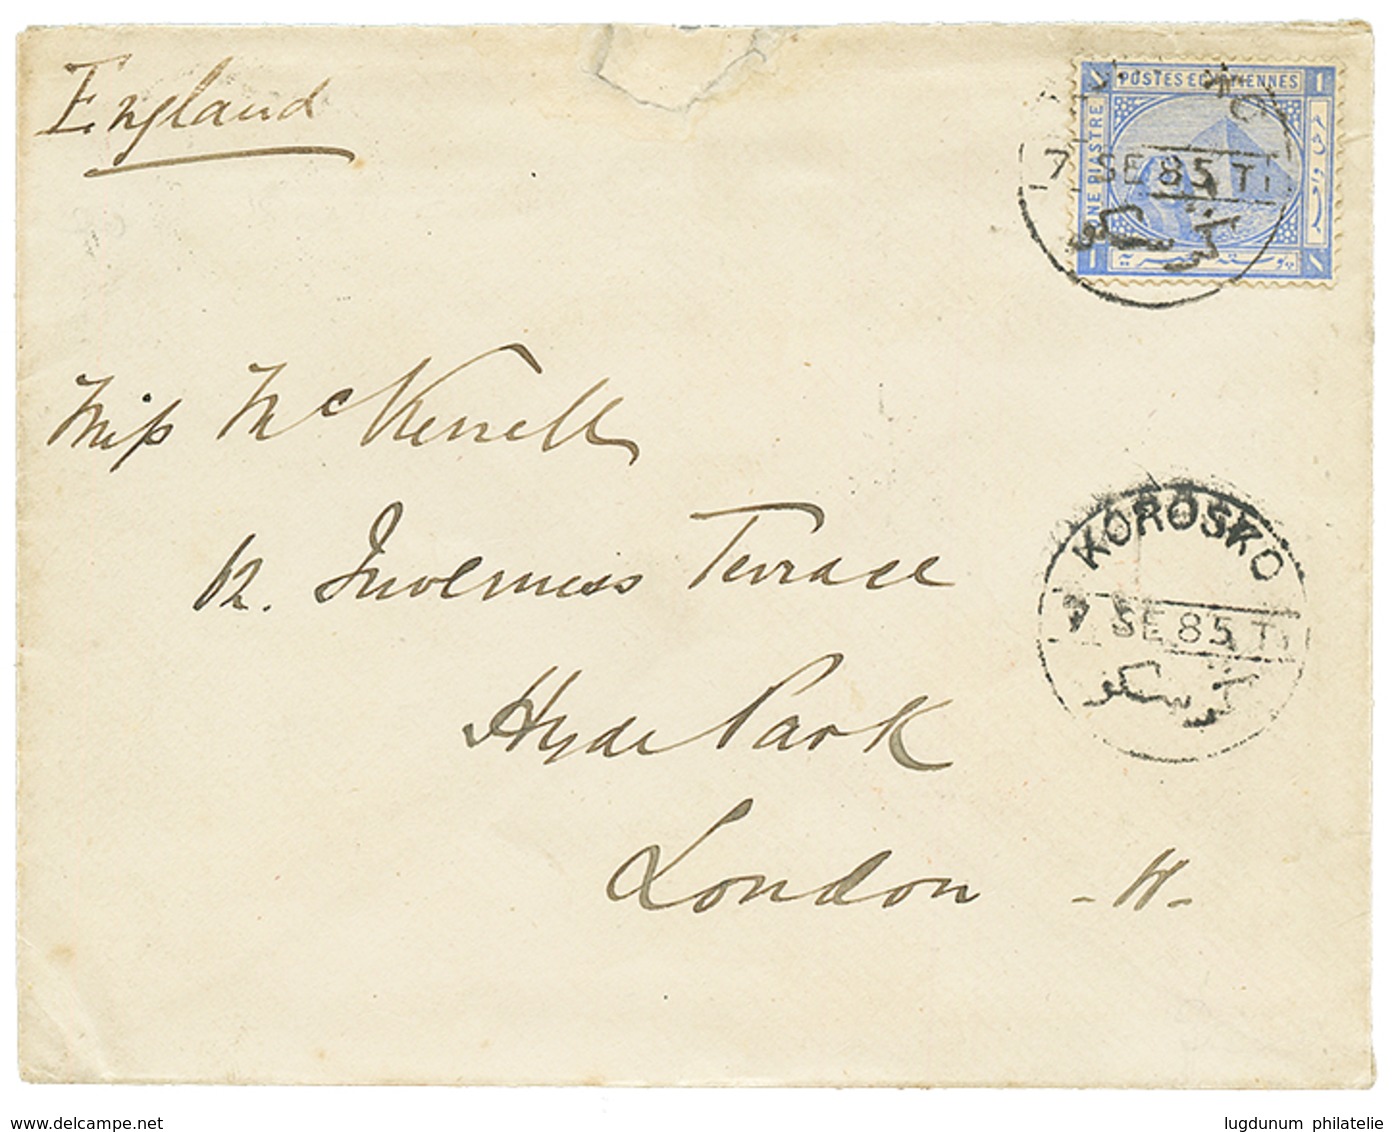 England
POSTES EGYPTIENNES
ONE PIASTRE
1
7 SE 85 TI
كرسكو
Miss McKerrell
12. Inverness Terrace
Hyde Park
London -W-
KOROSKO
7 SE 85 T
كرسكو
www.delcampe.net
lugdunum philatelie